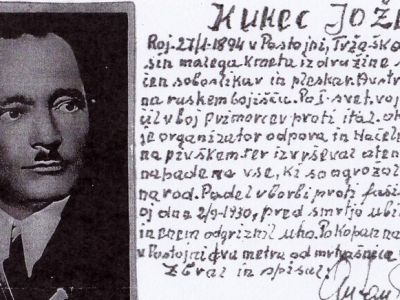 Kurec Jož
Roj. 27/1-1894 v Postojni, Tržaško
sin malega kmeta iz družine s
čen soboslikar in pleskar. Avstr
na ruskem bojišču. Po I. svet. voj
il v boj primorcev proti ital. ok
je organizator odpora in Načeln
na pivškem ter izvrševal aten
napade na vse, ki so ogrožal
narod. Padel v borbi proti faši
oj dne 2/9-1930, pred smrtjo ubi
in enem odgriznil uho. Pokopan na
v Postojni dva metra od mrtvašnice
Zbral in opisal: